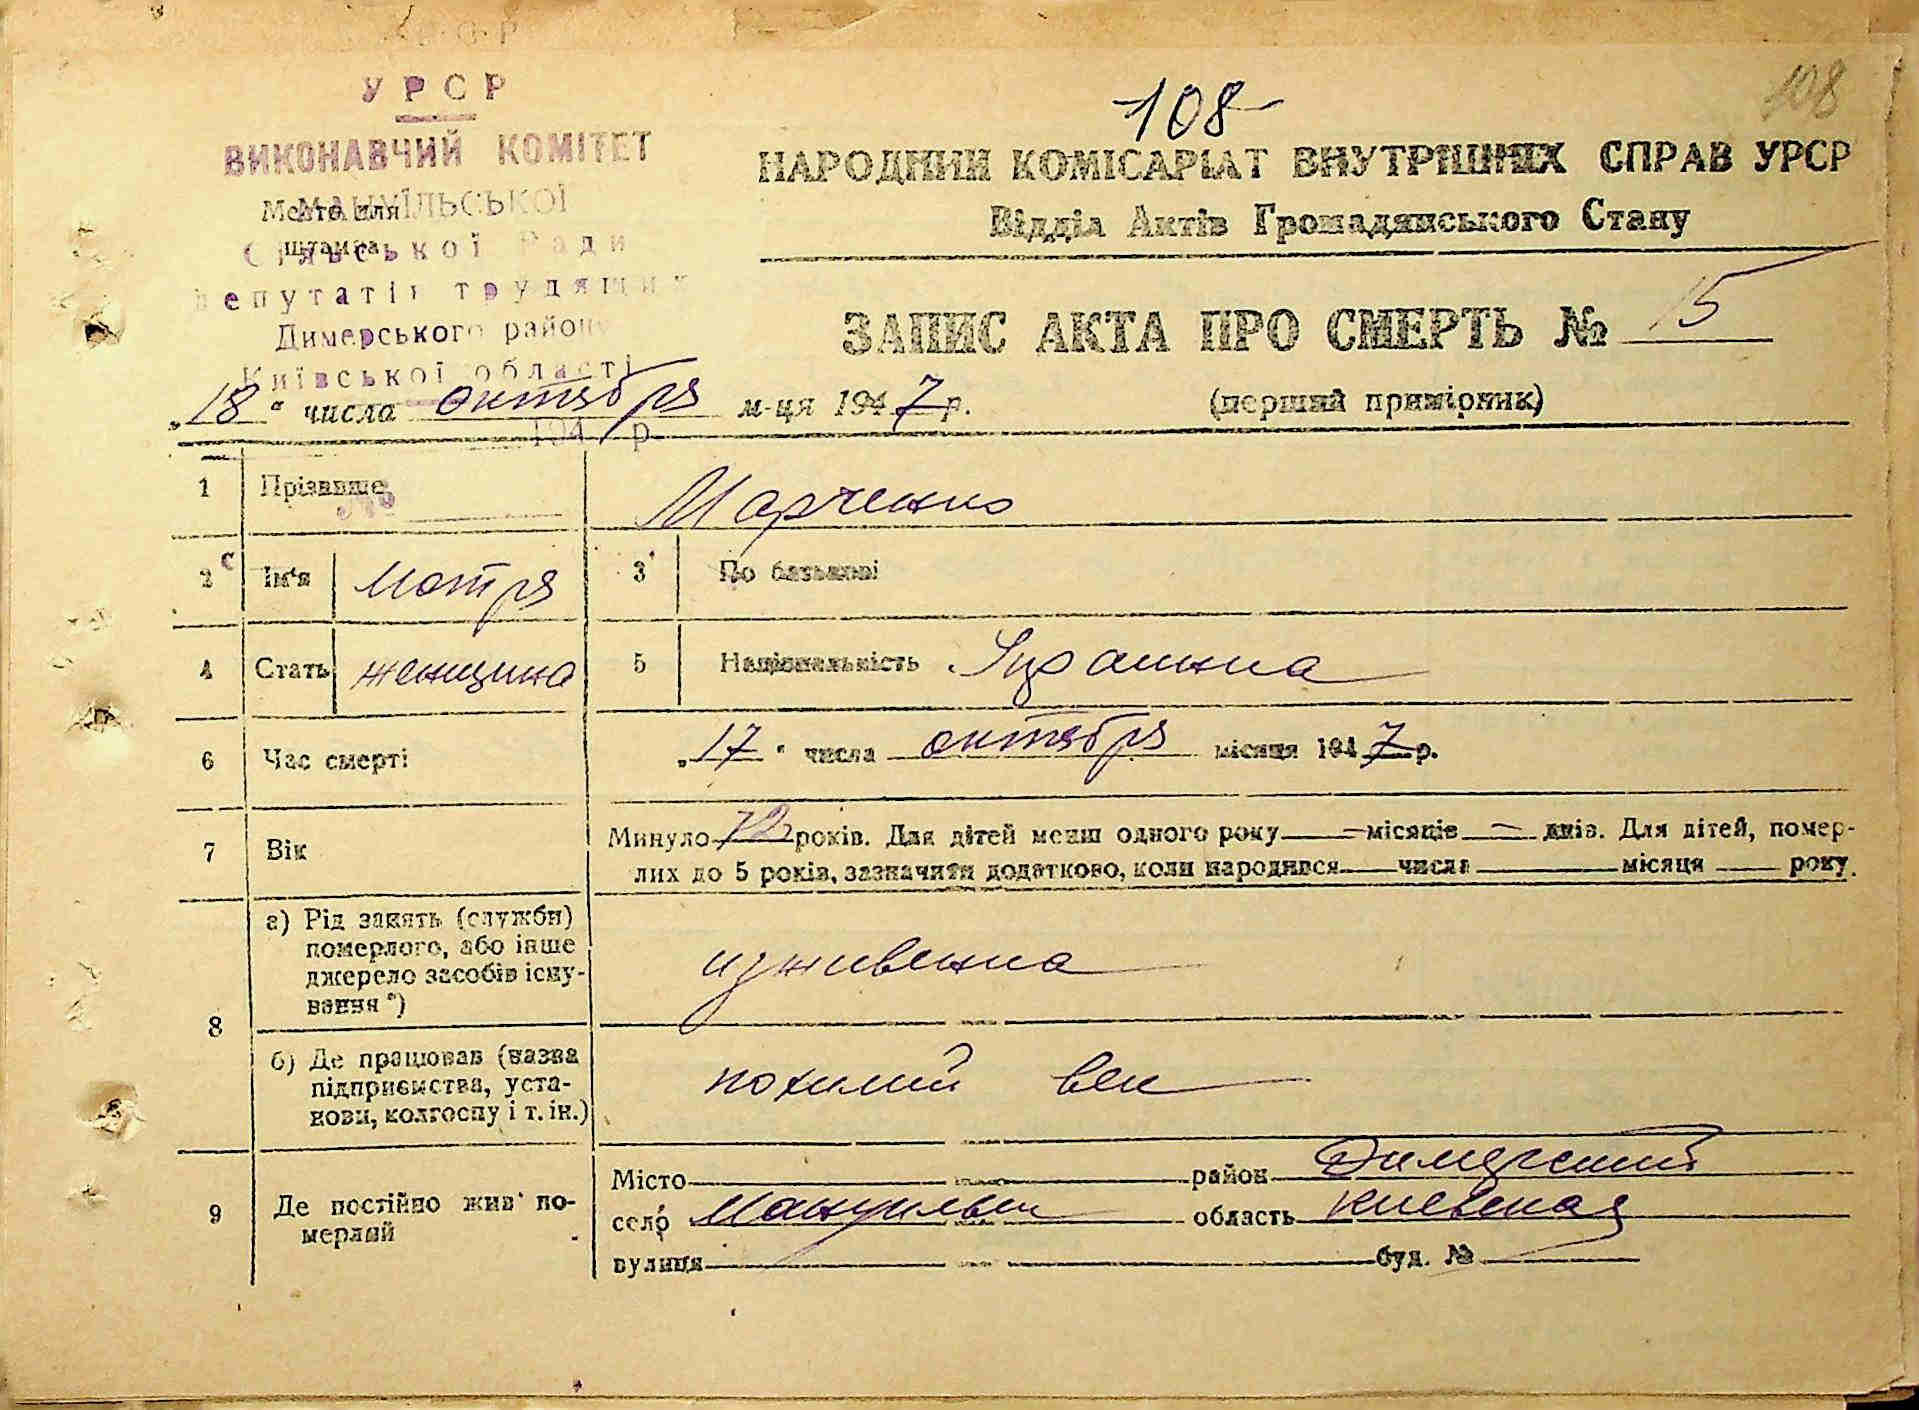 УРСР
ВИКОНАВЧИЙ КОМІТЕТ
МАНУЇЛЬСЬКОЇ
Сільської Ради
депутатів трудящих
Димерського району
Київської області
Место для
штампа
194 р.
№
108
108
НАРОДНИЙ КОМІСАРІАТ ВНУТРІШНІХ СПРАВ УРСР
Відділ Актів Громадянського Стану
ЗАПИС АКТА ПРО СМЕРТЬ № 15
„18“ числа октября м-ця 1947 р.
(перший примірник)
1 Прізвище Марченко
2 Ім'я Мотря 3 По батькові
4 Стать женщина 5 Національність
6 Час смерті „17“ числа октября місяця 1947 р.
7 Вік Минуло 72 років. Для дітей менш одного року — місяців — днів. Для дітей, помер-
лих до 5 років, зазначити додатково, коли народився числа місяця року.
8 а) Рід занять (служби)
померлого, або інше
джерело засобів існу-
вання *)
иживенка
б) Де працював (назва
підприємства, уста-
нови, колгоспу і т. ін.)
похилий век
9 Де постійно жив по-
мерлий
Місто район Димерский
село Мануильск область Киевская
вулиця буд. №